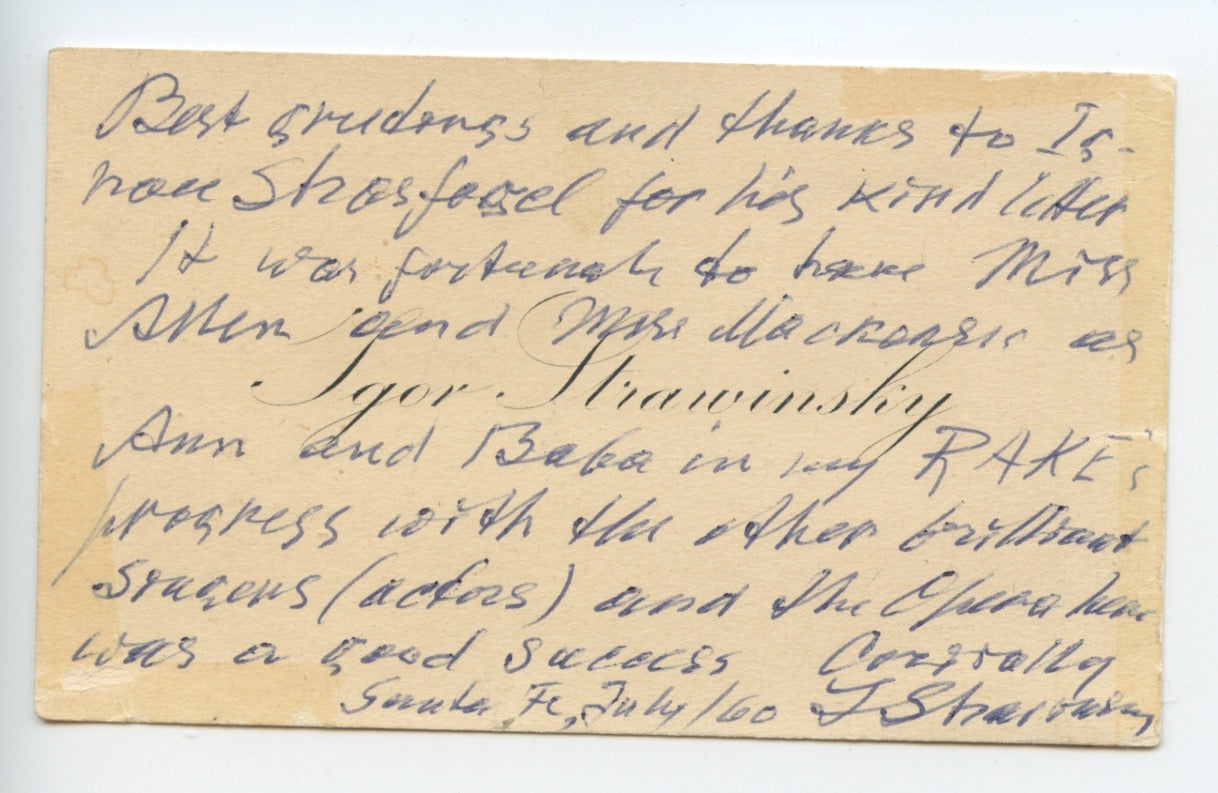 Best greetings and thanks to Ig-
nace Strasfogel for his kind letter
It was fortunate to have Miss
Allen and Miss Mackenzie as
Igor Strawinsky
Ann and Baba in my RAKE's
progress with the other brilliant
singers (actors) and the Opera here
was a good success Cordially
Santa Fe, July/60 I Strawinsky